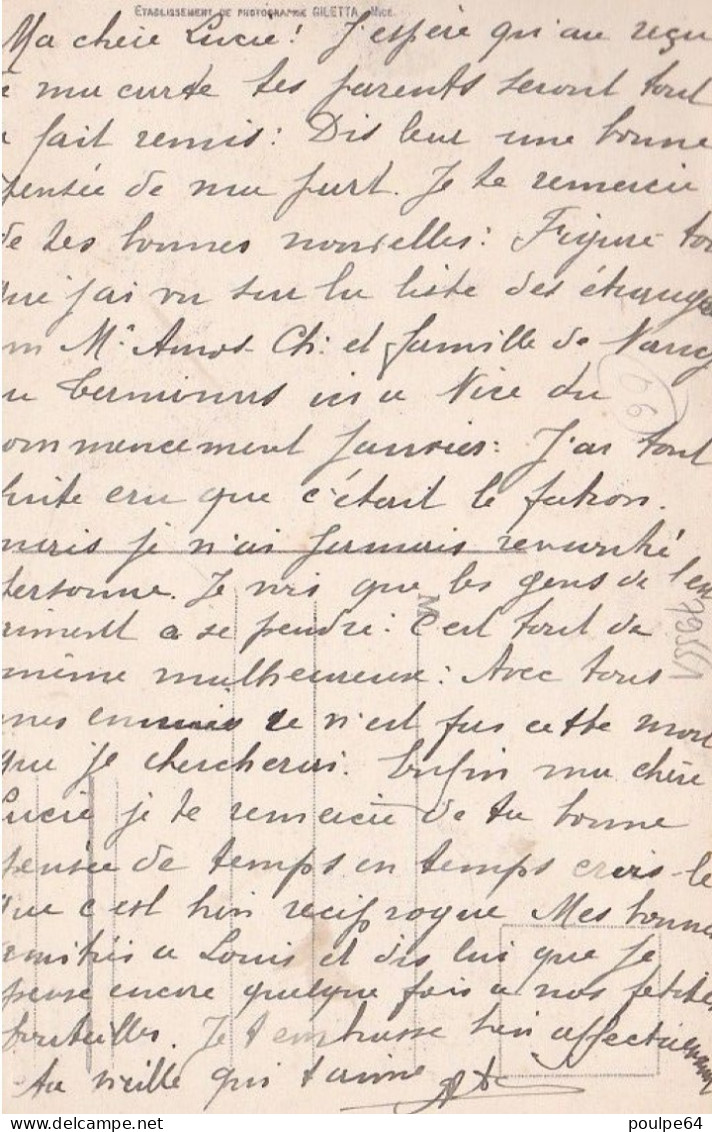 ETABLISSEMENT DE PHOTOGRAPHIE GILETTA _ NICE.
Ma chère Lucie! J'espère qu'au reçu
ma carte tes parents seront tout
fait remis: Dis leur une bonne
pensée de ma part. Je te remercie
de tes bonnes nouvelles: Figure toi
que j'ai vu sur la liste des
M. Amos Ch: et famille de Nancy
Terminus ici a Nice du
commencement Janvier: J'ai tout
suite cru que c'était le patron.
mais je n'ai jamais rencontré
personne. Je vois que les gens de
a se pendre: c'est tout de
même malheureuse: Avec tous
mes ennuis ce n'est pas cette mort
que je chercherai. Enfin ma chère
Lucie je te remercie de ta bonne
pensée de temps en temps crois-le
que c'est bien reciproque Mes bonnes
amitiés a Louis et dis lui que je
pense encore quelque fois a nos petites
bouteilles. Je t'embrasse bien
ta vieille qui t'aime
06
M
delcampe.net
poulpe64